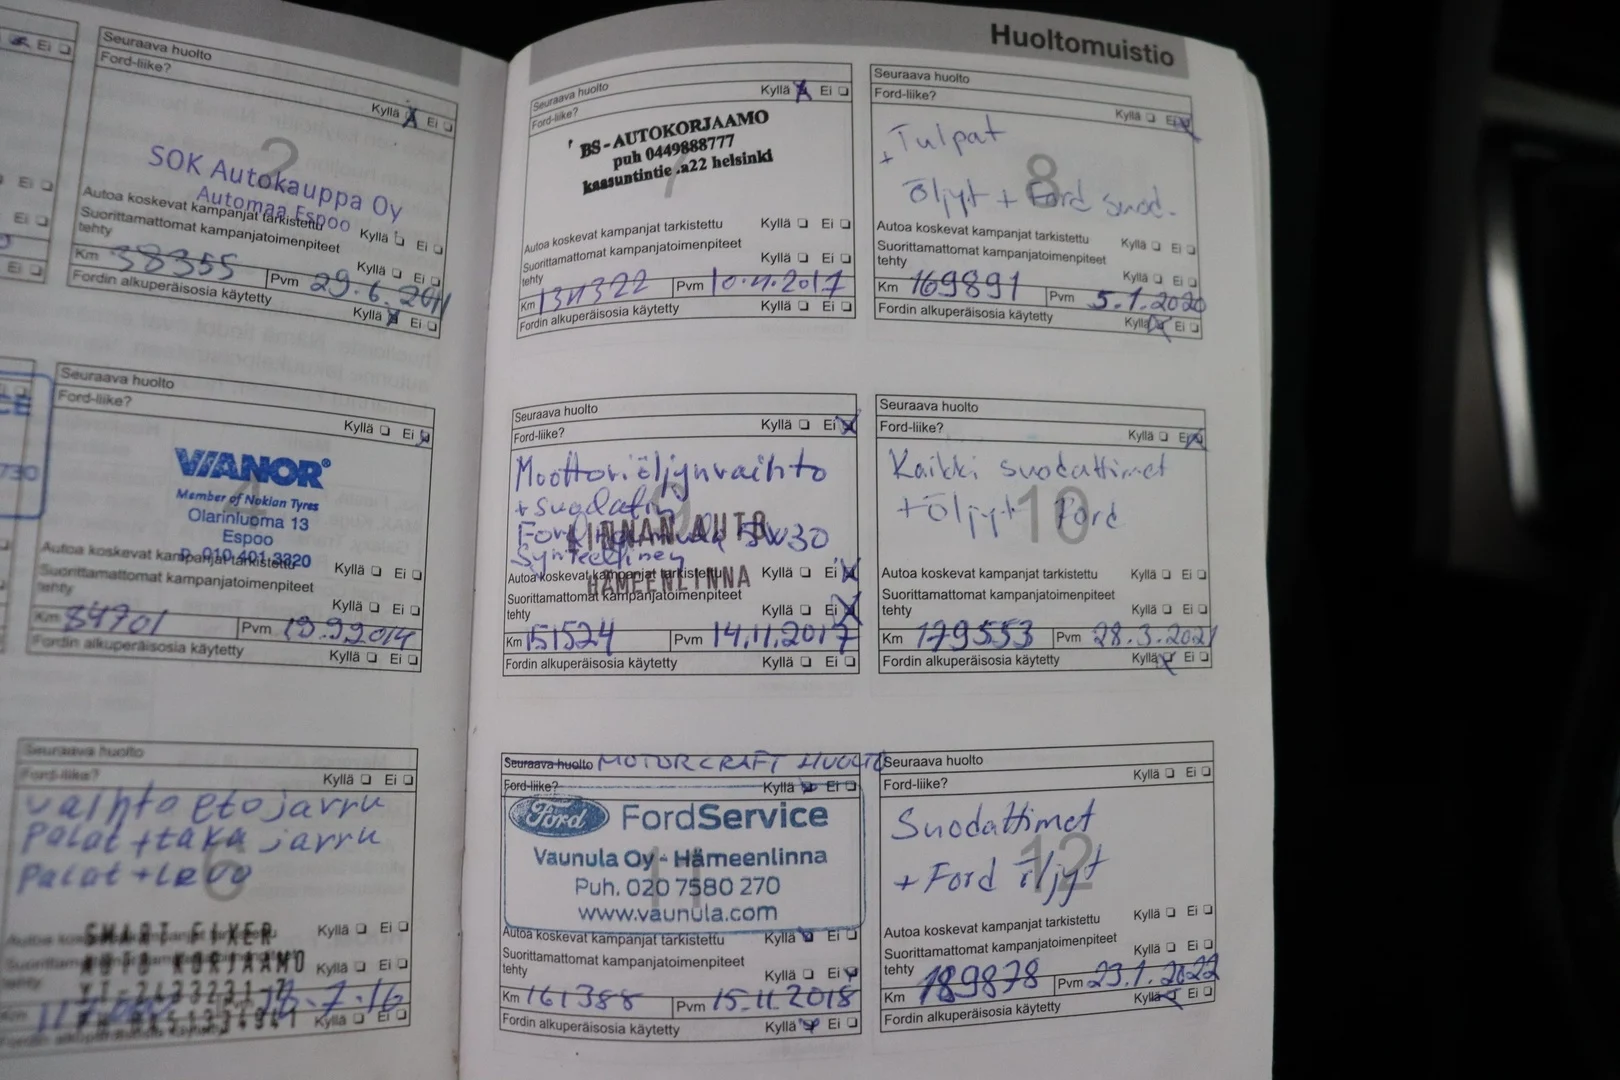 Ei
Seuraava huolto
Ford-liike?
Kyllä Ei
2
SOK Autokauppa Oy
Automaa Espoo
Autoa koskevat kampanjat tarkistettu
Kyllä Ei
Suorittamattomat kampanjatoimenpiteet
tehty
Kyllä Ei
Km 38355
Pvm 29.6.2011
Fordin alkuperäisosia käytetty
Kyllä Ei
Seuraava huolto
Ford-liike?
Kyllä Ei
4
VIANOR®
Member of Nokian Tyres
Olarinluoma 13
Espoo
p. 010 401 3320
Autoa koskevat kampanjat tarkistettu
Kyllä Ei
Suorittamattomat kampanjatoimenpiteet
tehty
Kyllä Ei
Km 84701
Pvm 19.9.2014
Fordin alkuperäisosia käytetty
Kyllä Ei
Seuraava huolto
Ford-liike?
Kyllä Ei
6
vaihto etojarru
Palat + taka jarru
Palat + levo
SMART FIXER
AUTO KORJAAMO
Kyllä Ei
Kyllä Ei
Kyllä Ei
Huoltomuistio
Seuraava huolto
Ford-liike?
Kyllä Ei
7
BS-AUTOKORJAAMO
puh 0449888777
kaasuntintie .a22 helsinki
Autoa koskevat kampanjat tarkistettu
Kyllä Ei
Suorittamattomat kampanjatoimenpiteet
tehty
Kyllä Ei
Km
Pvm
Fordin alkuperäisosia käytetty
Kyllä Ei
Seuraava huolto
Ford-liike?
Kyllä Ei
8
Tulpat
+
Öljyt + Ford suod.
Autoa koskevat kampanjat tarkistettu
Kyllä Ei
Suorittamattomat kampanjatoimenpiteet
tehty
Kyllä Ei
Km 169891
Pvm 5.1.2020
Fordin alkuperäisosia käytetty
Kyllä Ei
Seuraava huolto
Ford-liike?
Kyllä Ei
9
Moottoriöljynvaihto
+ suodatin
Ford 5W30
Synteettinen
LINNAN AUTO
HÄMEENLINNA
Autoa koskevat kampanjat tarkistettu
Kyllä Ei
Suorittamattomat kampanjatoimenpiteet
tehty
Kyllä Ei
Km 151524
Pvm 14.11.2017
Fordin alkuperäisosia käytetty
Kyllä Ei
Seuraava huolto
Ford-liike?
Kyllä Ei
10
Kaikki suodattimet
+ öljyt Ford
Autoa koskevat kampanjat tarkistettu
Kyllä Ei
Suorittamattomat kampanjatoimenpiteet
tehty
Kyllä Ei
Km 179553
Pvm 28.3.2021
Fordin alkuperäisosia käytetty
Kyllä Ei
Seuraava huolto MOTORCRAFT HUOLTO
Ford-liike?
Kyllä Ei
11
Ford FordService
Vaunula Oy - Hämeenlinna
Puh. 020 7580 270
www.vaunula.com
Autoa koskevat kampanjat tarkistettu
Kyllä Ei
Suorittamattomat kampanjatoimenpiteet
tehty
Kyllä Ei
Km 161388
Pvm 15.11.2018
Fordin alkuperäisosia käytetty
Kyllä Ei
Seuraava huolto
Ford-liike?
Kyllä Ei
12
Suodattimet
+ Ford öljyt
Autoa koskevat kampanjat tarkistettu
Kyllä Ei
Suorittamattomat kampanjatoimenpiteet
tehty
Kyllä Ei
Km 189878
Pvm 23.1.2022
Fordin alkuperäisosia käytetty
Kyllä Ei